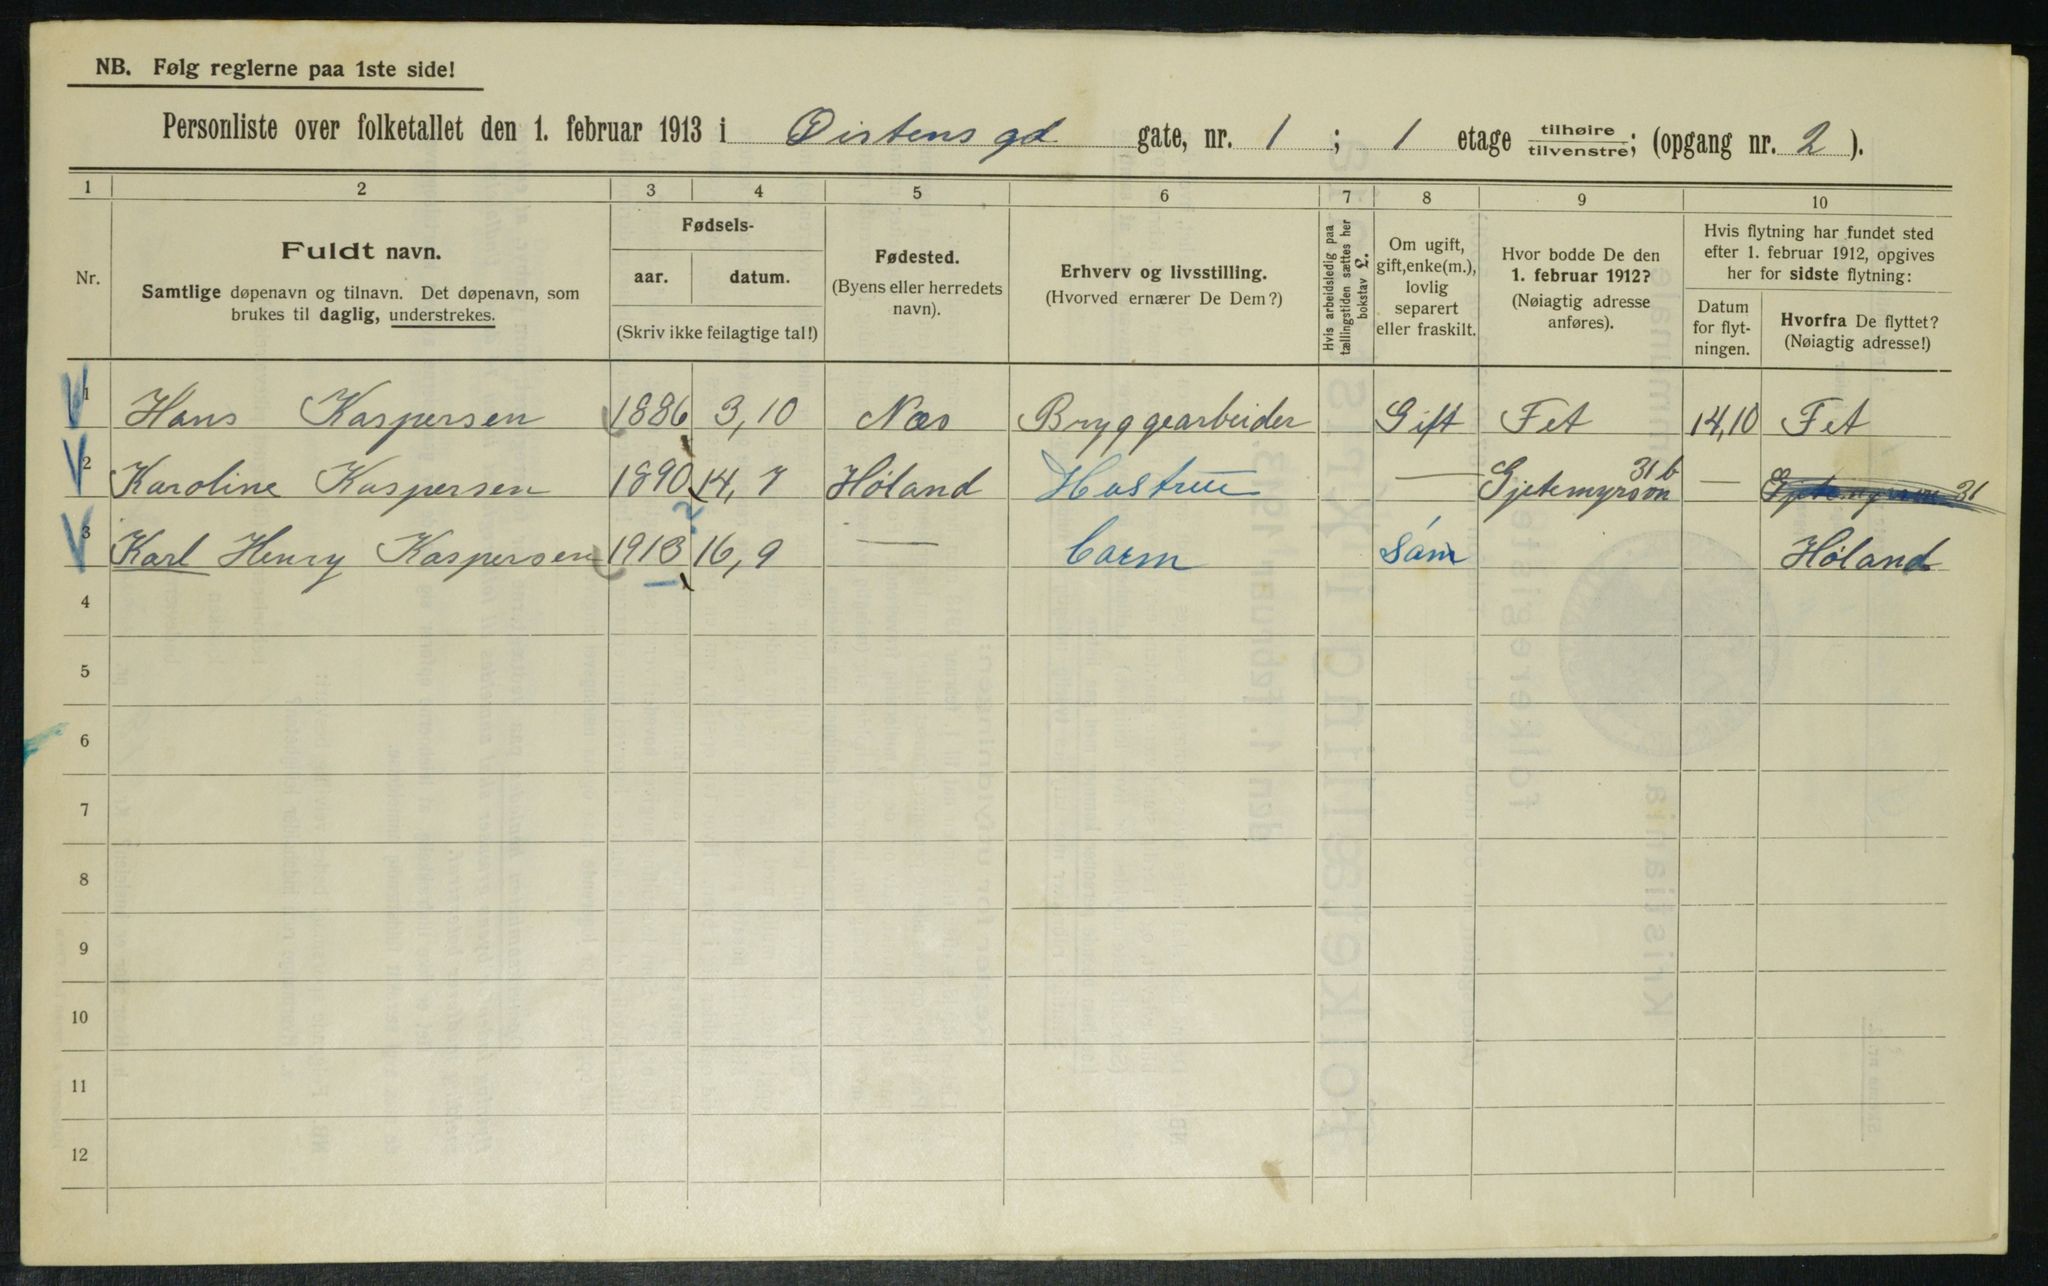 NB. Følg reglerne paa 1ste side!
Personliste over folketallet den 1. februar 1913 i Øistens gd gate, nr. 1 ; 1 etage tilhøire/tilvenstre; (opgang nr. 2 ).
1 2 3 4 5 6 7 8 9 10
Nr.
Fuldt navn.
Samtlige døpenavn og tilnavn. Det døpenavn, som
brukes til daglig, understrekes.
Fødsels-
aar. datum.
(Skriv ikke feilagtige tal!)
Fødested.
(Byens eller herredets
navn).
Erhverv og livsstilling.
(Hvorved ernærer De Dem?)
Hvis arbeidsledig paa
tællingstiden sættes her
bokstav L.
Om ugift,
gift, enke(m.),
lovlig
separert
eller fraskilt.
Hvor bodde De den
1. februar 1912?
(Nøiagtig adresse
anføres).
Hvis flytning har fundet sted
efter 1. februar 1912, opgives
her for sidste flytning:
Datum
for flyt-
ningen.
Hvorfra De flyttet?
(Nøiagtig adresse!)
1 Hans Kaspersen 1886 3,10 Næs Bryggearbeider Gift Fet 14,10 Fet
2 Karoline Kaspersen 1890 14,7 Høland Hustru — Gjetemyrsvn 31b — Gjetemyrsvn 31
3 Karl Henry Kaspersen 1913 2 16,9 — barn Høland
4
5
6
7
8
9
10
11
12